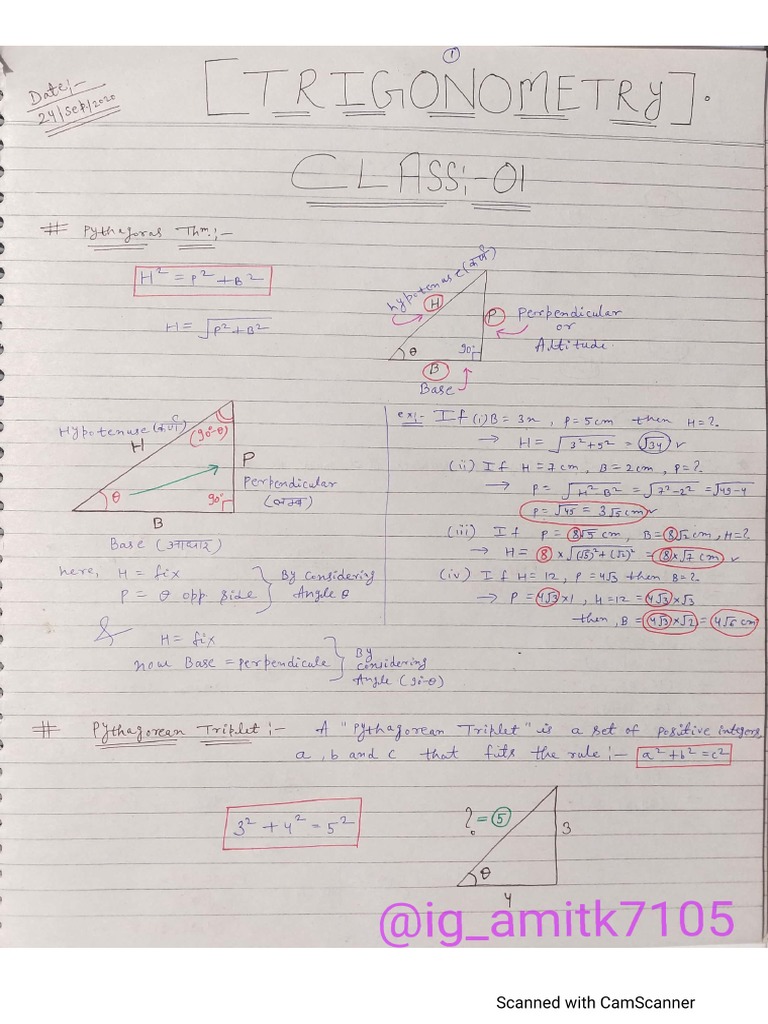 ①
Date:-
24/Sep/2020
[TRIGONOMETRY].
CLASS:-01
# Pythagoras Thm:-
H² = P² + B²
H = √P²+B²
Hypotenuse (कर्ण)
H
P
Perpendicular
or
Altitude
θ
90°
B
Base
Hypotenuse (कर्ण)
H
(90°-θ)
P
Perpendicular
(लम्ब)
θ
90°
B
Base (आधार)
here, H = fix
P = θ opp side
By considering
Angle θ
& H = fix
now Base = perpendicule
By
considering
Angle (90-θ)
ex:- If (i) B = 3m, P = 5cm then H = ?
→ H = √3²+5² = √34
(ii) If H = 7cm, B = 2cm, P = ?
→ P = √H²-B² = √7²-2² = √49-4
P = √45 = 3√5 cm
(iii) If P = 8√5 cm, B = 8√2 cm, H = ?
→ H = 8 × √(√5)²+(√2)² = 8×√7 cm
(iv) If H = 12, P = 4√3 then B = ?
→ P = 4√3 × 1, H = 12 = 4√3 × √3
then, B = 4√3 × √2 = 4√6 cm
# Pythagorean Triplet:- A "Pythagorean Triplet" is a set of positive integers,
a, b and c that fits the rule:- a²+b²=c²
3² + 4² = 5²
? = 5
3
θ
4
@ig_amitk7105
Scanned with CamScanner